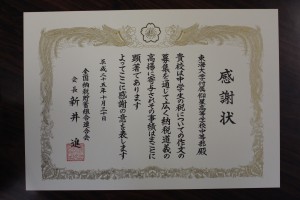 感謝状
東海大学付属仰星高等学校中等部殿
貴校は中学生の税についての作文の
募集を通じて広く納税道義の
高揚に寄与されその事績はまことに
顕著であります
よってここに感謝の意を表します
平成二十五年十月三十日
全国納税貯蓄組合連合会
会長 新井 進